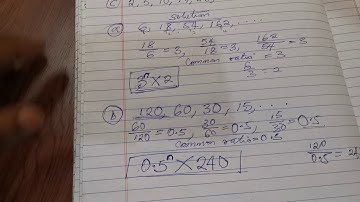 C, 2, 5, 10, 17,
Solution
(a) 6, 18, 54, 162, ...
18/6 = 3, 54/18 = 3, 162/54 = 3
Common ratio = 3
6/3 = 2
3ⁿ × 2
(b) 120, 60, 30, 15, ...
60/120 = 0.5, 30/60 = 0.5, 15/30 = 0.5
Common ratio = 0.5
120/0.5 = 24
0.5ⁿ × 240